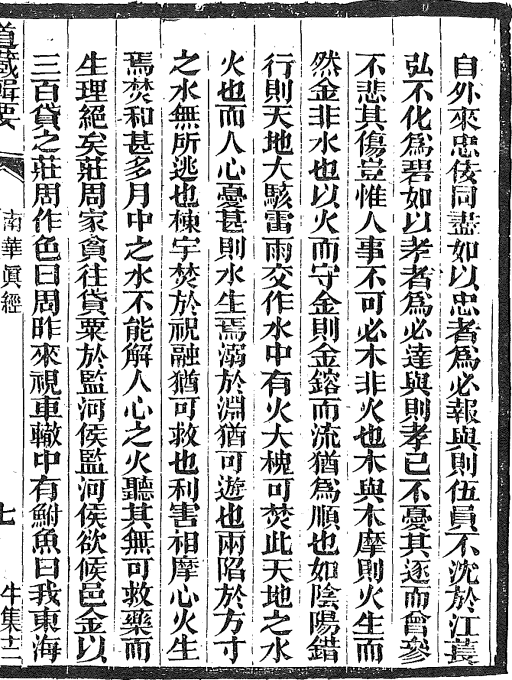 自外來忠佞同盡如以忠者爲必報與則伍員不沈於江萇
弘不化爲碧如以孝者爲必達與則孝已不憂其逐而曾參
不悲其傷豈惟人事不可必木非火也木與木摩則火生而
然金非水也以火而守金則金鎔而流猶爲順也如陰陽錯
行則天地大駭雷雨交作水中有火大槐可焚此天地之水
火也而人心憂甚則水生焉溺於淵猶可遊也兩陷於方寸
之水無所逃也棟宇焚於祝融猶可救也利害相摩心火生
焉焚和甚多月中之水不能解人心之火聽其無可救藥而
生理絕矣莊周家貧往貸粟於監河侯監河侯欲候邑金以
三百貸之莊周作色曰周昨來視車轍中有鮒魚曰我東海
道藏輯要
南華眞經
七
牛集十二